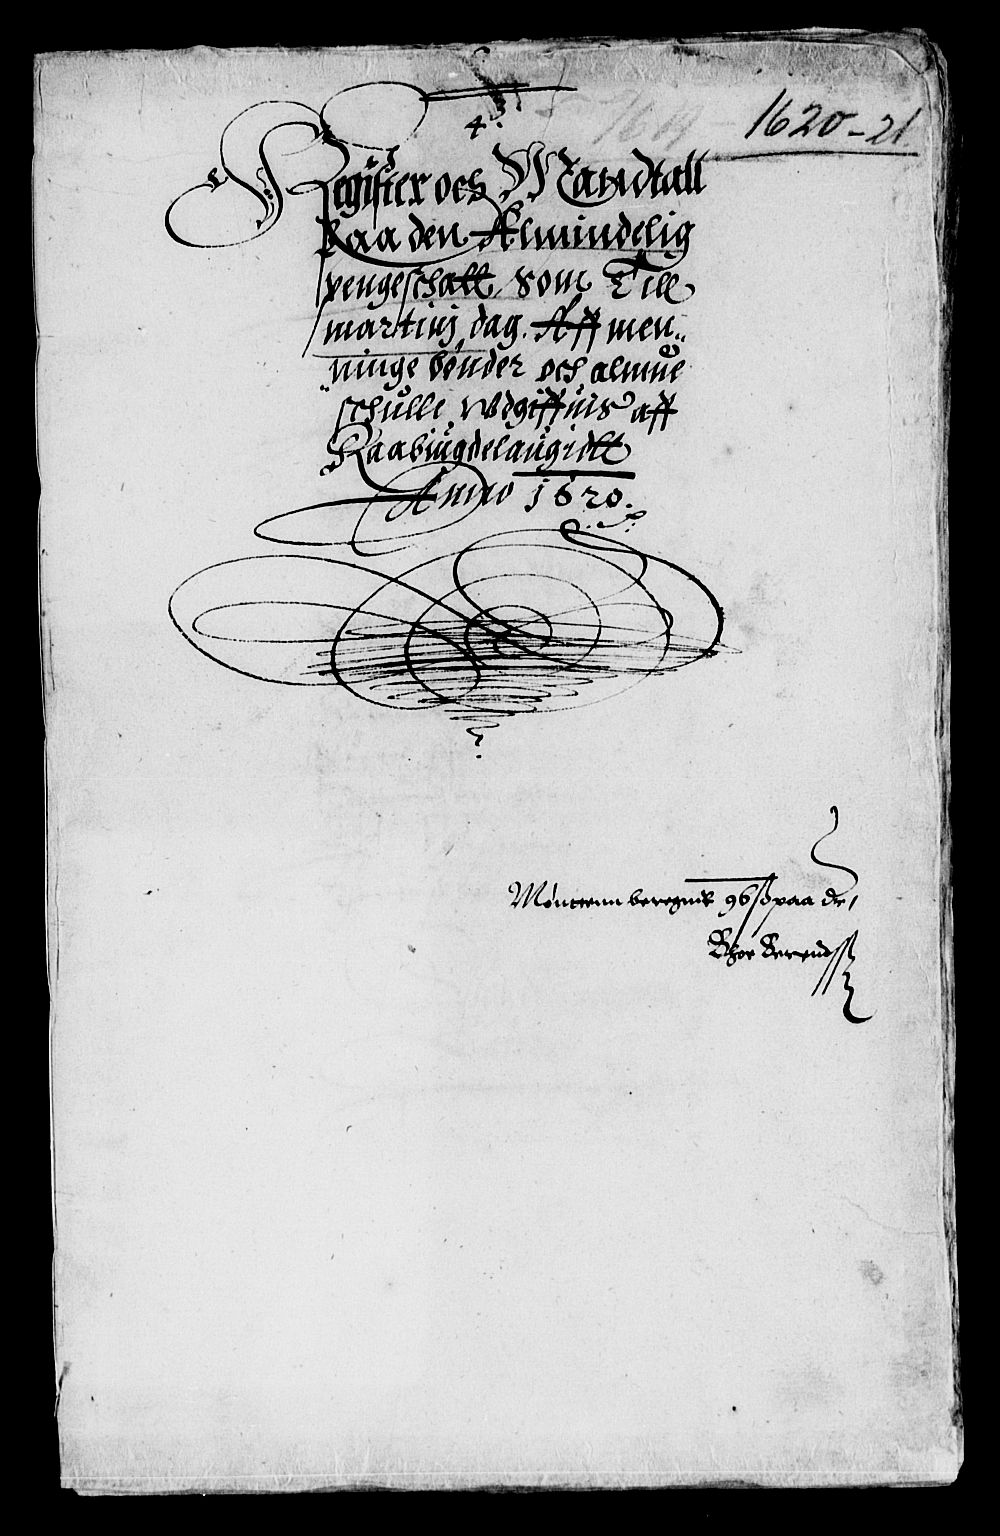 4.
1620-21.
Register och Mandtall
Paa den Almindelig
pengeschatt, som Till
martinj dag. Aff men„
„ninge bønder och almue
schulle wdgiffuis aff
Raabiugdelaugridtt
Anno 1620.
Møntenn beregnit 96 ß paa dr,
Thor